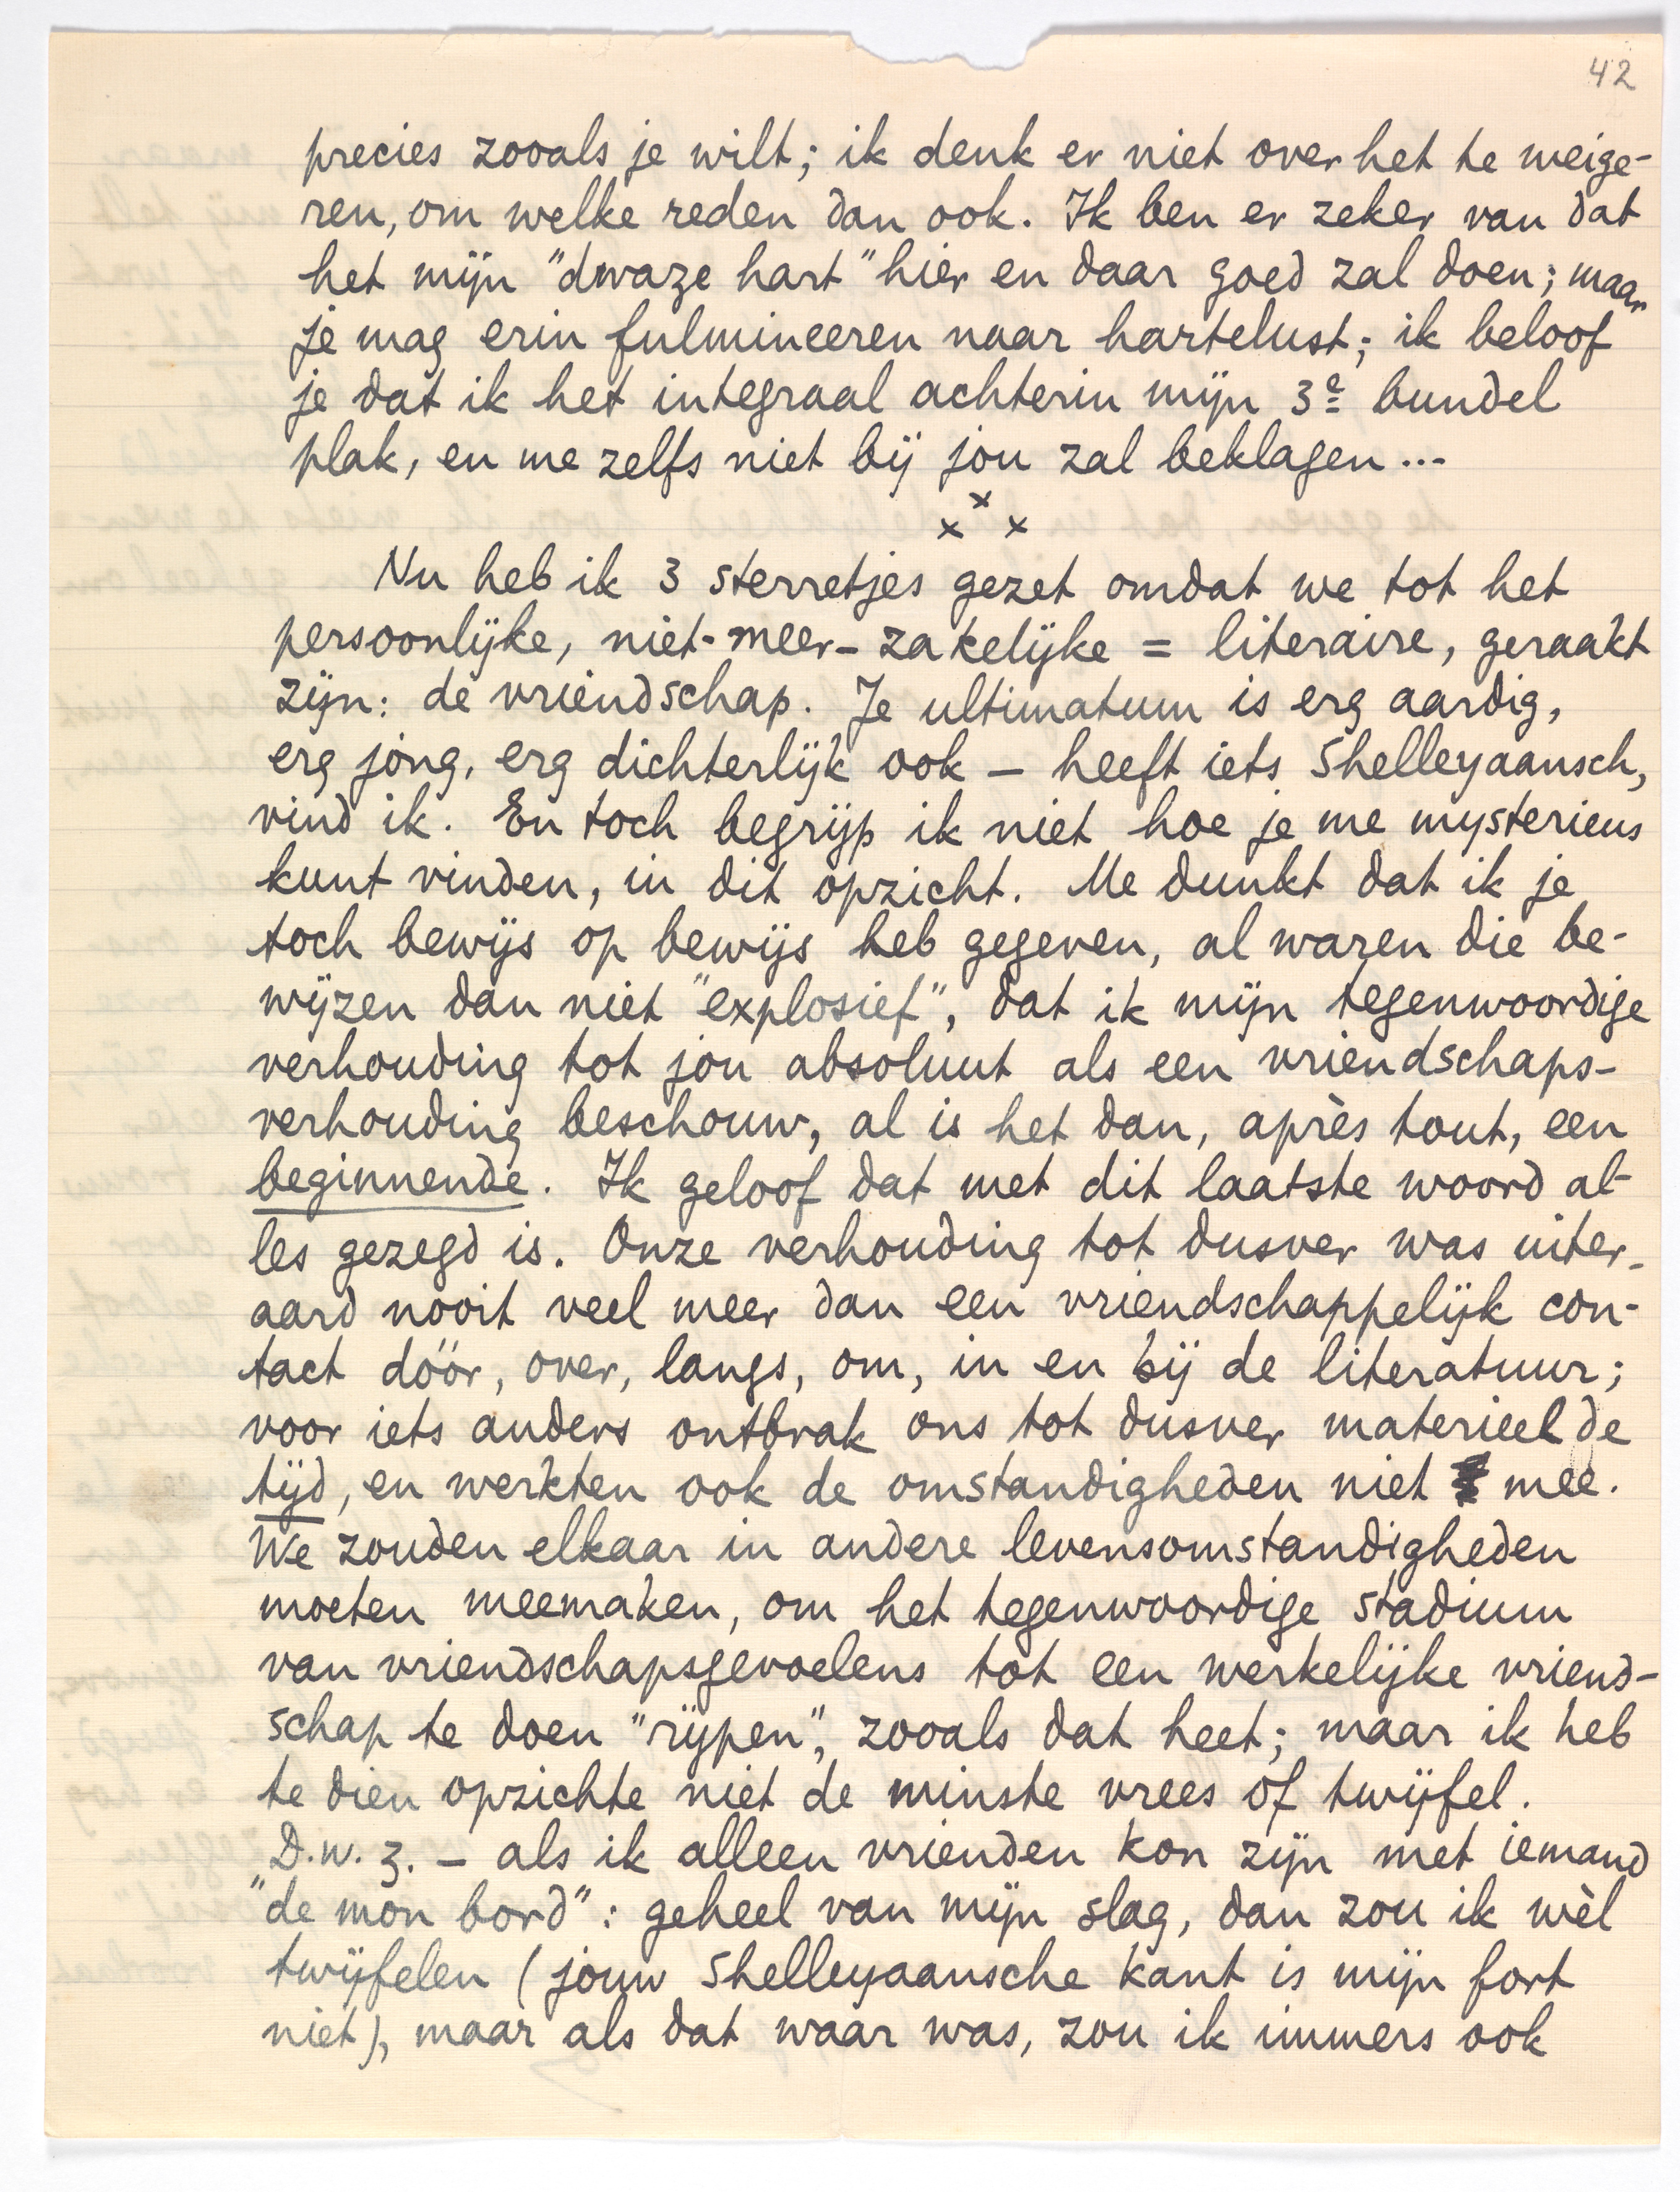 42
precies zooals je wilt; ik denk er niet over het te weige-
ren, om welke reden dan ook. Ik ben er zeker van dat
het mijn "dwaze hart" hier en daar goed zal doen; maar
je mag erin fulmineeren naar hartelust; ik beloof
je dat ik het integraal achterin mijn 3e bundel
plak, en me zelfs niet bij jou zal beklagen...
x x x
Nu heb ik 3 sterretjes gezet omdat we tot het
persoonlijke, niet-meer-zakelijke = literaire, geraakt
zijn: de vriendschap. Je ultimatum is erg aardig,
erg jong, erg dichterlijk ook – heeft iets Shelleyaansch,
vind ik. En toch begrijp ik niet hoe je me mysterieus
kunt vinden, in dit opzicht. Me dunkt dat ik je
toch bewijs op bewijs heb gegeven, al waren die be-
wijzen dan niet "explosief", dat ik mijn tegenwoordige
verhouding tot jou absoluut als een vriendschaps-
verhouding beschouw, al is het dan, après tout, een
beginnende. Ik geloof dat met dit laatste woord al-
les gezegd is. Onze verhouding tot dusver was uiter-
aard nooit veel meer dan een vriendschappelijk con-
tact dóór, over, langs, om, in en bij de literatuur;
voor iets anders ontbrak ons tot dusver materieel de
tijd, en werkten ook de omstandigheden niet mee.
We zouden elkaar in andere levensomstandigheden
moeten meemaken, om het tegenwoordige stadium
van vriendschapsgevoelens tot een werkelijke vriend-
schap te doen "rijpen", zooals dat heet; maar ik heb
te dien opzichte niet de minste vrees of twijfel.
D.w.z. – als ik alleen vrienden kon zijn met iemand
"de mon bord": geheel van mijn slag, dan zou ik wèl
twijfelen (jouw Shelleyaansche kant is mijn fort
niet), maar als dat waar was, zou ik immers ook